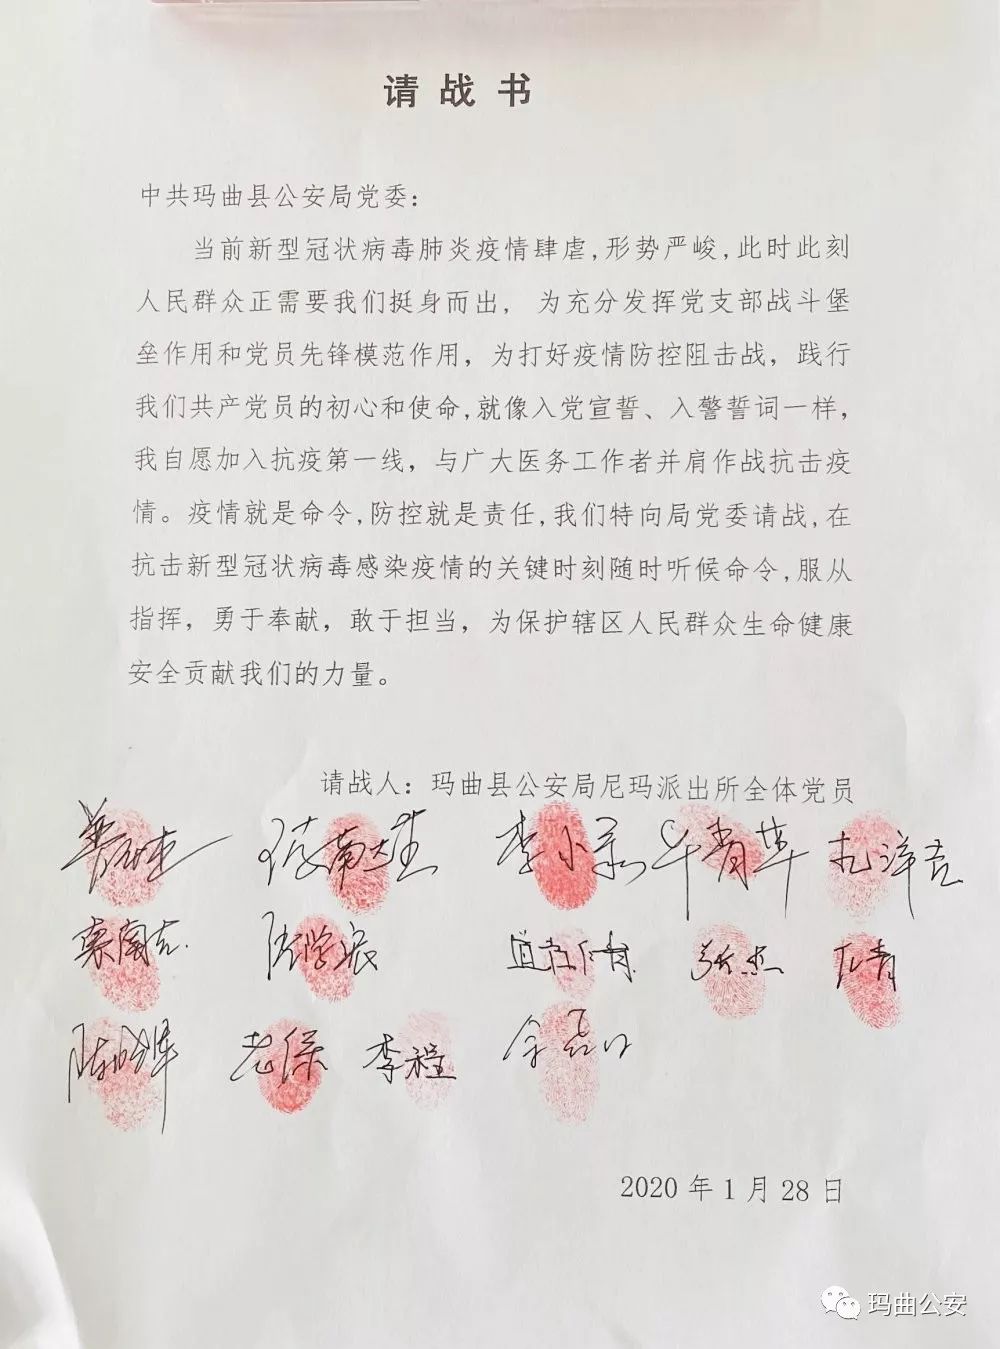 请战书
中共玛曲县公安局党委：
当前新型冠状病毒肺炎疫情肆虐,形势严峻，此时此刻
人民群众正需要我们挺身而出， 为充分发挥党支部战斗堡
垒作用和党员先锋模范作用，为打好疫情防控阻击战，践行
我们共产党员的初心和使命,就像入党宣誓、入警誓词一样，
我自愿加入抗疫第一线，与广大医务工作者并肩作战抗击疫
情。疫情就是命令,防控就是责任,我们特向局党委请战,在
抗击新型冠状病毒感染疫情的关键时刻随时听候命令,服从
指挥，勇于奉献，敢于担当，为保护辖区人民群众生命健康
安全贡献我们的力量。
请战人：玛曲县公安局尼玛派出所全体党员
老保 李程
2020年1月28日
玛曲公安